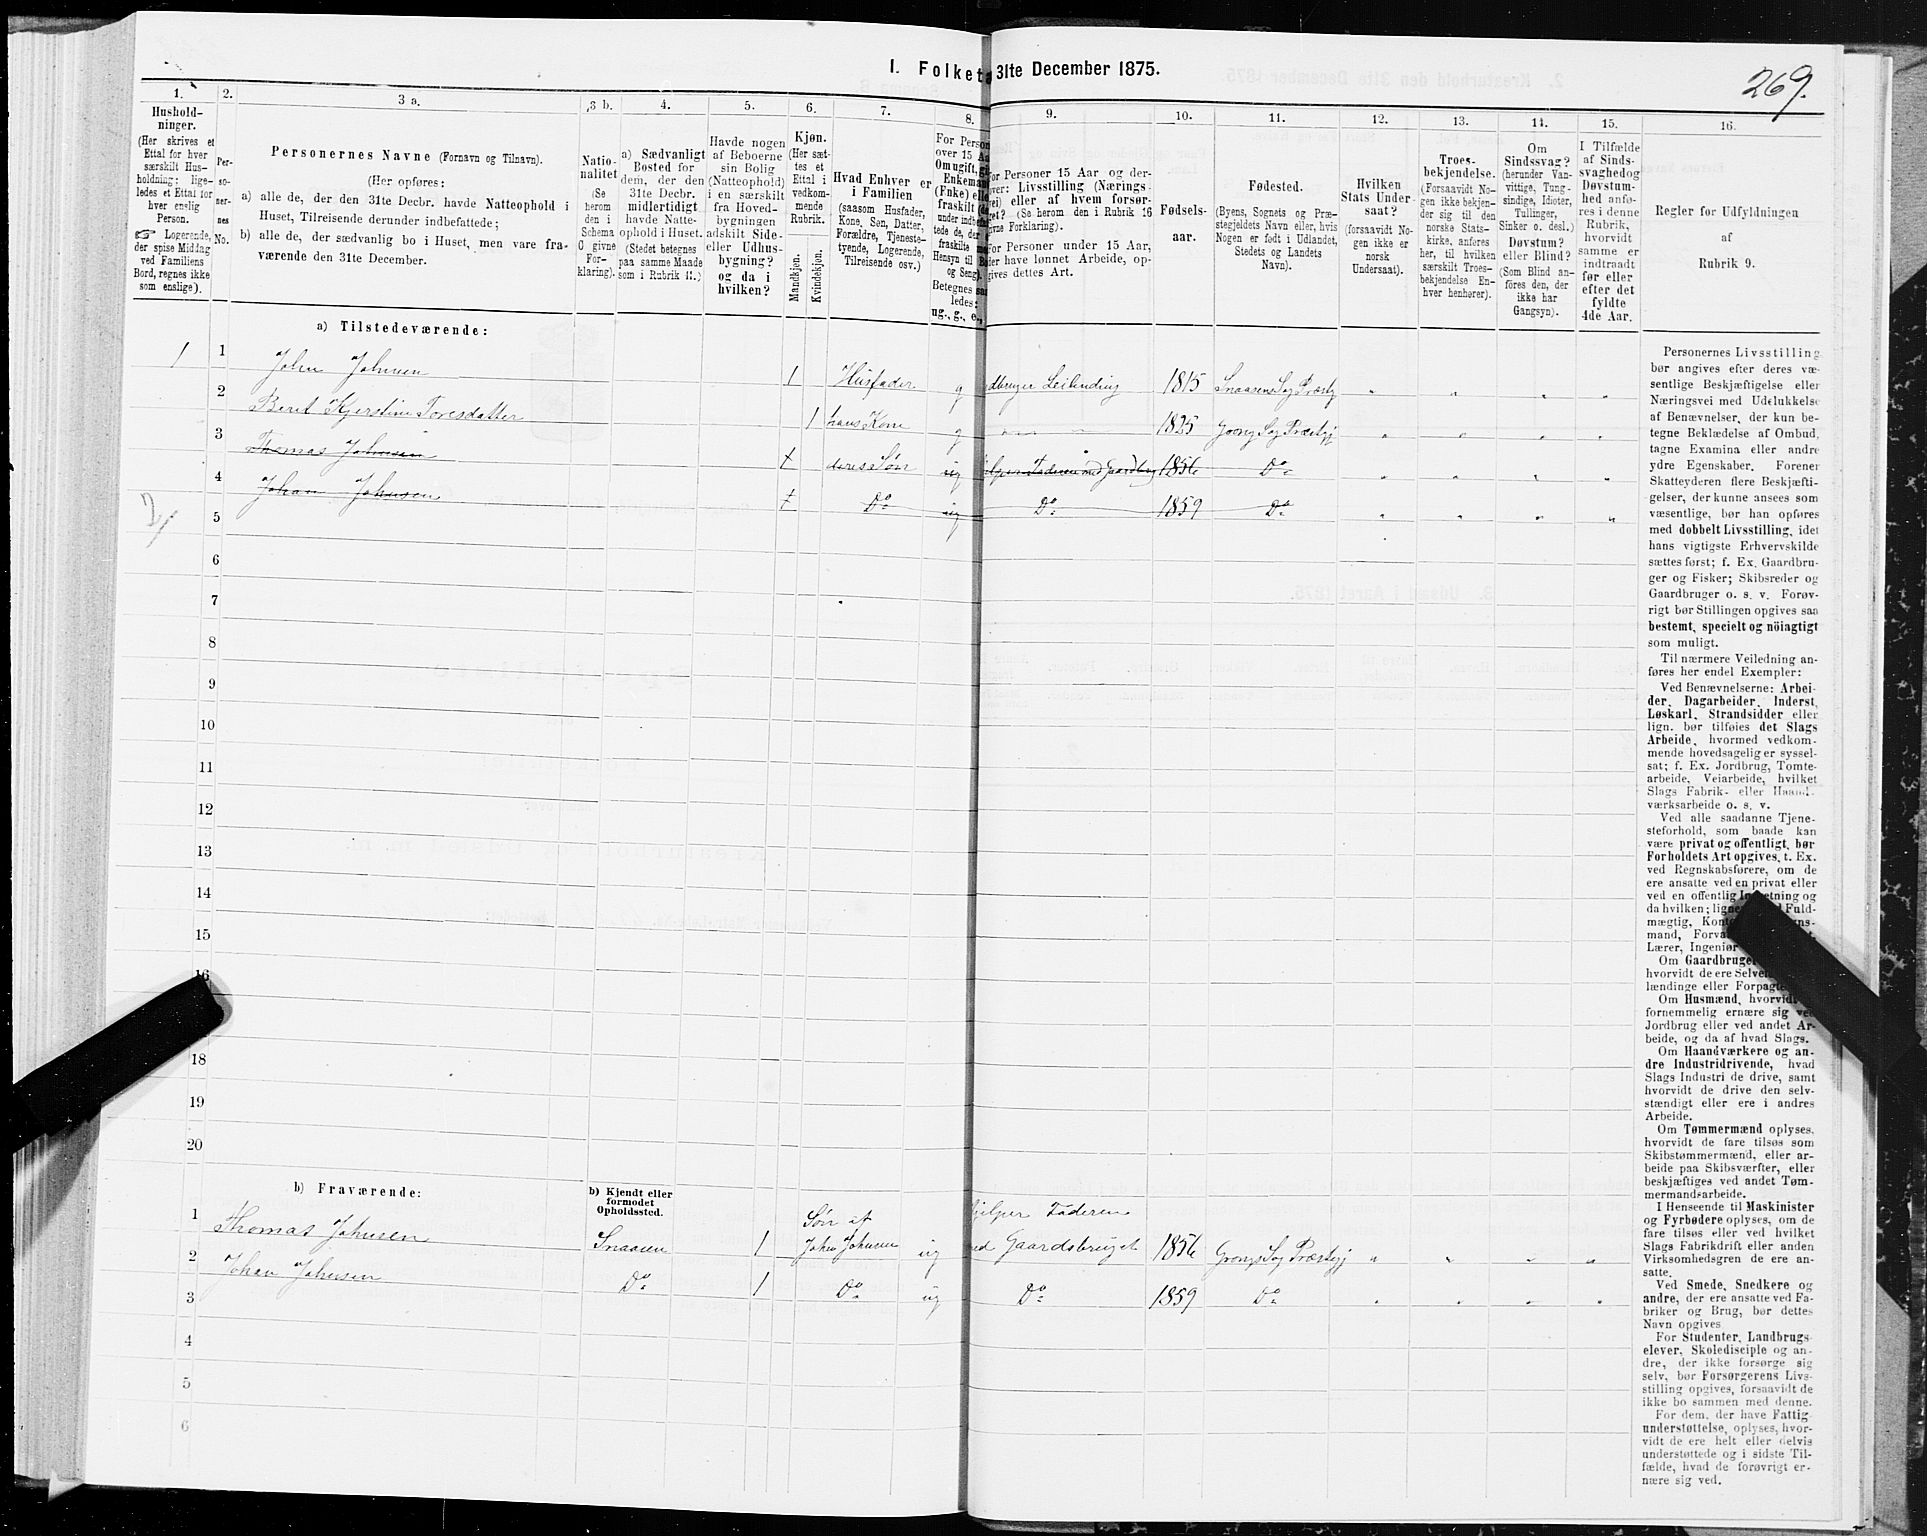 I. Folketæ 31te December 1875.
269.
1.
Hushold-
ninger.
(Her skrives et
Ettal for hver
særskilt Hus-
holdning: lige-
ledes et Ettal for
hver enslig
Person.
☞ Logerende,
der spise Middag
ved Familiens
Bord, regnes ikke
som enslige).
2.
Per-
so-
ner-
nes
No.
3 a.
Personernes Navne (Fornavn og Tilnavn).
(Her opføres:
a) alle de, der den 31te Decbr. havde Natteophold i
Huset, Tilreisende derunder indbefattede;
b) alle de, der sædvanlig bo i Huset, men vare fra-
værende den 31te December.
3 b.
Natio-
nalitet
(Se
herom
den i
Schema
O givne
For-
klaring).
4.
a) Sædvanligt
Bosted for
dem, der den
31te Decbr.
midlertidigt
havde Natte-
ophold i Huset.
(Stedet betegnes
paa samme Maade
som i Rubrik 11.)
5.
Havde nogen
af Beboerne
sin Bolig
(Natteophold)
i en særskilt
fra Hoved-
bygningen
adskilt Side-
eller Udhus-
bygning?
og da i
hvilken?
6.
Kjøn.
(Her sæt-
tes et
Ettal i
vedkom-
mende
Rubrik.
Mandkjøn.
Kvindekjøn.
7.
Hvad Enhver er
i Familien
(saasom Husfader,
Kone, Søn, Datter,
Forældre, Tjeneste-
tyende, Logerende,
Tilreisende osv.)
8.
For Person
over 15 Aa
Omugift, gi
Enkeman
(Enke) elle
fraskilt (
under indb
tede de, de
fraskilte me
Hensyn til B
og Seng).
Betegnes saa
ledes:
ug., g., e.,
9.
For Personer 15 Aar og der-
over: Livsstilling (Nærings-
vei) eller af hvem forsør-
get? (Se herom den i Rubrik 16
givne Forklaring).
For Personer under 15 Aar,
der have lønnet Arbeide, op-
gives dettes Art.
10.
Fødsels-
aar.
11.
Fødested.
(Byens, Sognets og Præ-
stegjeldets Navn eller, hvis
Nogen er født i Udlandet,
Stedets og Landets
Navn).
12.
Hvilken
Stats Under-
saat?
(forsaavidt No-
gen ikke er
norsk
Undersaat).
13.
Troes-
bekjendelse.
(Forsaavidt No-
gen ikke bekjen-
der sig til den
norske Stats-
kirke, anføres
her, til hvilken
særskilt Troes-
bekjendelse En-
hver henhører).
14.
Om
Sindssvag?
(herunder Van-
vittige, Tung-
sindige, Idioter,
Tullinger,
Sinker o. desl.)
Døvstum?
eller Blind?
(Som Blind an-
føres den, der
ikke har
Gangsyn).
15.
I Tilfælde
af Sinds-
svaghed og
Døvstum-
hed anfø-
res i denne
Rubrik,
hvorvidt
samme er
indtraadt
før eller
efter det
fyldte
4de Aar.
16.
Regler for Udfyldningen
af
Rubrik 9.
a) Tilstedeværende:
1 1 John Johnsen 1 Husfader g dbruger Leilending 1815 Snaasens Sog Præstg " " " "
2 Beret Kjerstine Toresdatter 1 hans Kone g " " " 1825 Grong Sog Præstgj " " " "
3 Thomas Johnsen 1 deres Søn ug hjelper Faderen med Gaardbrug 1856 Do " " " "
4 Johan Johnsen 1 Do ug Do 1859 Do " " " "
5
6
7
8
9
10
11
12
13
14
15
16
18
19
20
b) Fraværende:
b) Kjendt eller
formodet
Opholdssted.
Søn af hjelper Faderen
1 Thomas Johnsen Snaasen 1 John Johnsen ug ved Gaardsbruget 1856 Grongs Sog Præstgj " " " "
2 Johan Johnsen Do 1 Do ug Do 1859 Do " " " "
3
4
5
6
Personernes Livsstilling
bør angives efter deres væ-
sentlige Beskjæftigelse eller
Næringsvei med Udelukkelse
af Benævnelser, der kun be-
tegne Beklædelse af Ombud,
tagne Examina eller andre
ydre Egenskaber. Forener
Skatteyderen flere Beskjæfti-
gelser, der kunne ansees som
væsentlige, bør han opføres
med dobbelt Livsstilling, idet
hans vigtigste Erhvervskilde
sættes først; f. Ex. Gaardbru-
ger og Fisker; Skibsreder og
Gaardbruger o. s. v. Forøv-
rigt bør Stillingen opgives saa
bestemt, specielt og nöiagtigt
som muligt.
Til nærmere Veiledning an-
føres her endel Exempler:
Ved Benævnelserne: Arbei-
der, Dagarbeider, Inderst,
Løskarl, Strandsidder eller
lign. bør tilføies det Slags
Arbeide, hvormed vedkom-
mende hovedsagelig er syssel-
sat; f. Ex. Jordbrug, Tomte-
arbeide, Veiarbeide, hvilket
Slags Fabrik- eller Haand-
værksarbeide o. s. v.
Ved alle saadanne Tjene-
steforhold, som baade kan
være privat og offentligt, bør
Forholdets Art opgives, t. Ex.
ved Regnskabsførere, om de
ere ansatte ved en privat eller
ved en offentlig Indretning og
da hvilken; ligne Fuld-
mægtig, Kont ns-
mand, Forva
Lærer, Ingeniør
Om Gaardbruge
hvorvidt de ere Selve
lændinge eller Forpagte
Om Husmænd, hvorvidt
fornemmelig ernære sig ve
Jordbrug eller ved andet Ar-
beide, og da af hvad Slags.
Om Haandværkere og an-
dre Industridrivende, hvad
Slags Industri de drive, samt
hvorvidt de drive den selv-
stændigt eller ere i andres
Arbeide.
Om Tømmermænd oplyses,
hvorvidt de fare tilsøs som
Skibstømmermænd, eller ar-
beide paa Skibsværfter, eller
beskjæftiges ved andet Tøm-
mermandsarbeide.
I Henseende til Maskinister
og Fyrbødere oplyses, om de
fare tilsøs eller ved hvilket
Slags Fabrikdrift eller anden
Virksomhedsgren de ere an-
satte.
Ved Smede, Snedkere og
andre, der ere ansatte ved Fa-
briker og Brug, bør dettes
Navn opgives
For Studenter, Landbrugs-
elever, Skoledisciple og an-
dre, der ikke forsørge sig
selv, bør Forsørgerens Livs-
stilling opgives, forsaavidt de
ikke bo sammen med denne.
For dem, der have Fattig-
understøttelse, oplyses, hvor-
vidt de ere helt eller delvis
understøttede og i sidste Til-
fælde, hvad de forøvrigt er-
nære sig ved.